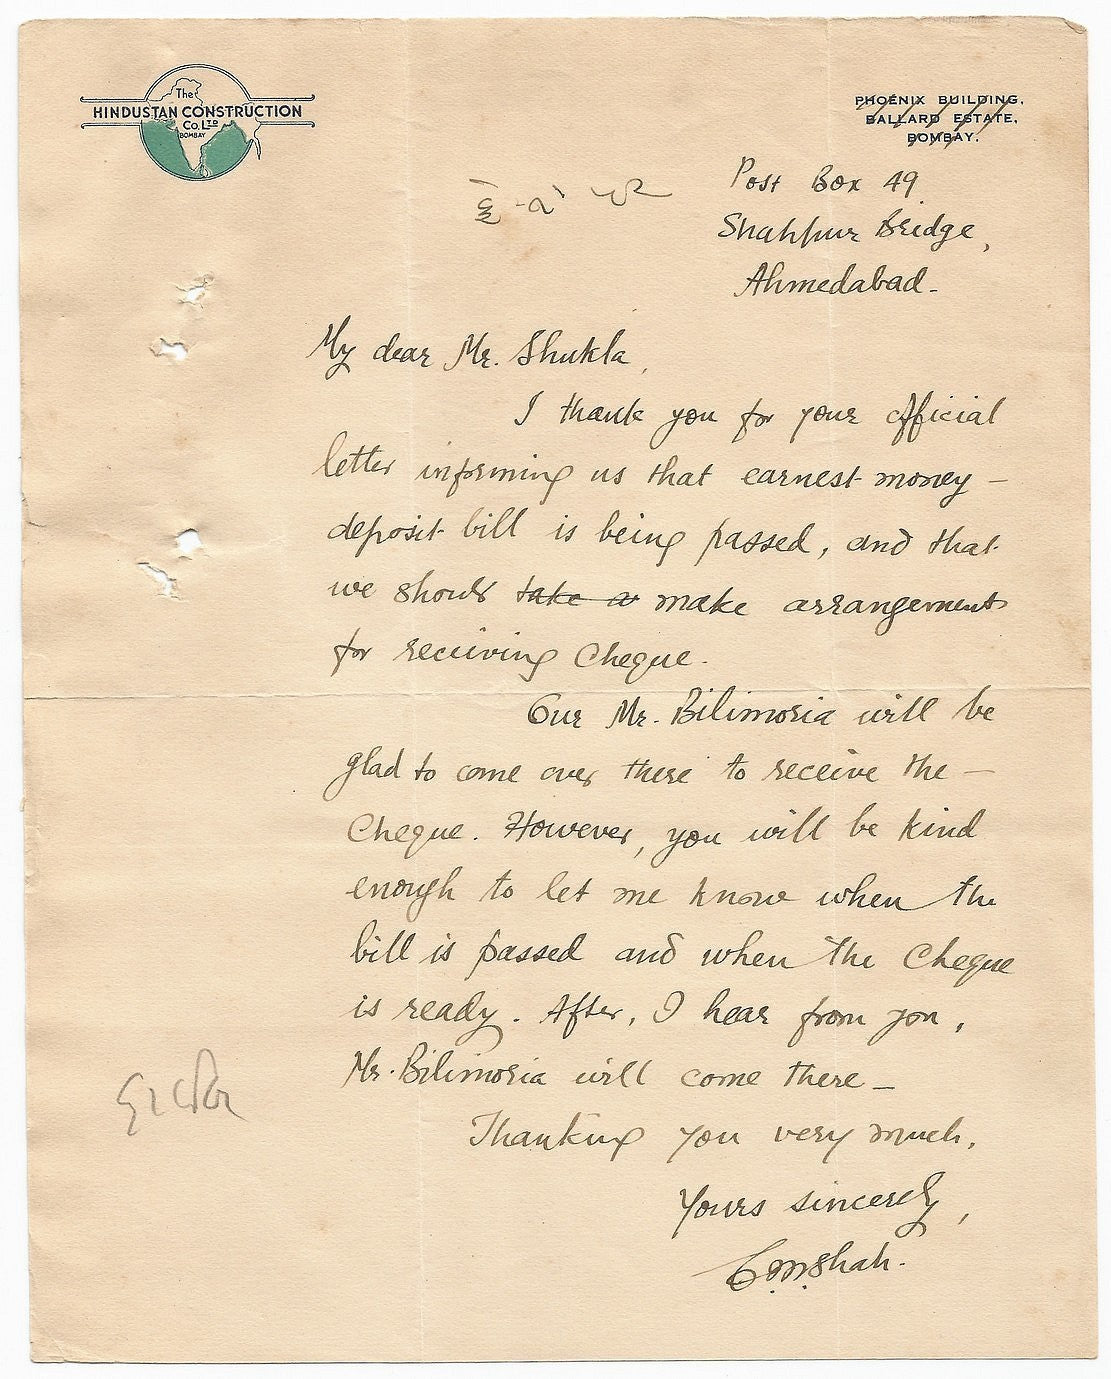 The
HINDUSTAN CONSTRUCTION
Co. LTD
BOMBAY
PHOENIX BUILDING,
BALLARD ESTATE,
BOMBAY.
Post Box 49
Shahpur Bridge,
Ahmedabad.
My dear Mr. Shukla,
I thank you for your official
letter informing us that earnest money –
deposit bill is being passed, and that
we should take a make arrangements
for receiving Cheque.
Our Mr. Bilimoria will be
glad to come over there to receive the –
Cheque. However, you will be kind
enough to let me know when the
bill is passed and when the Cheque
is ready. After, I hear from you,
Mr. Bilimoria will come there –
Thanking you very much,
Yours sincerely,
C.M.Shah.